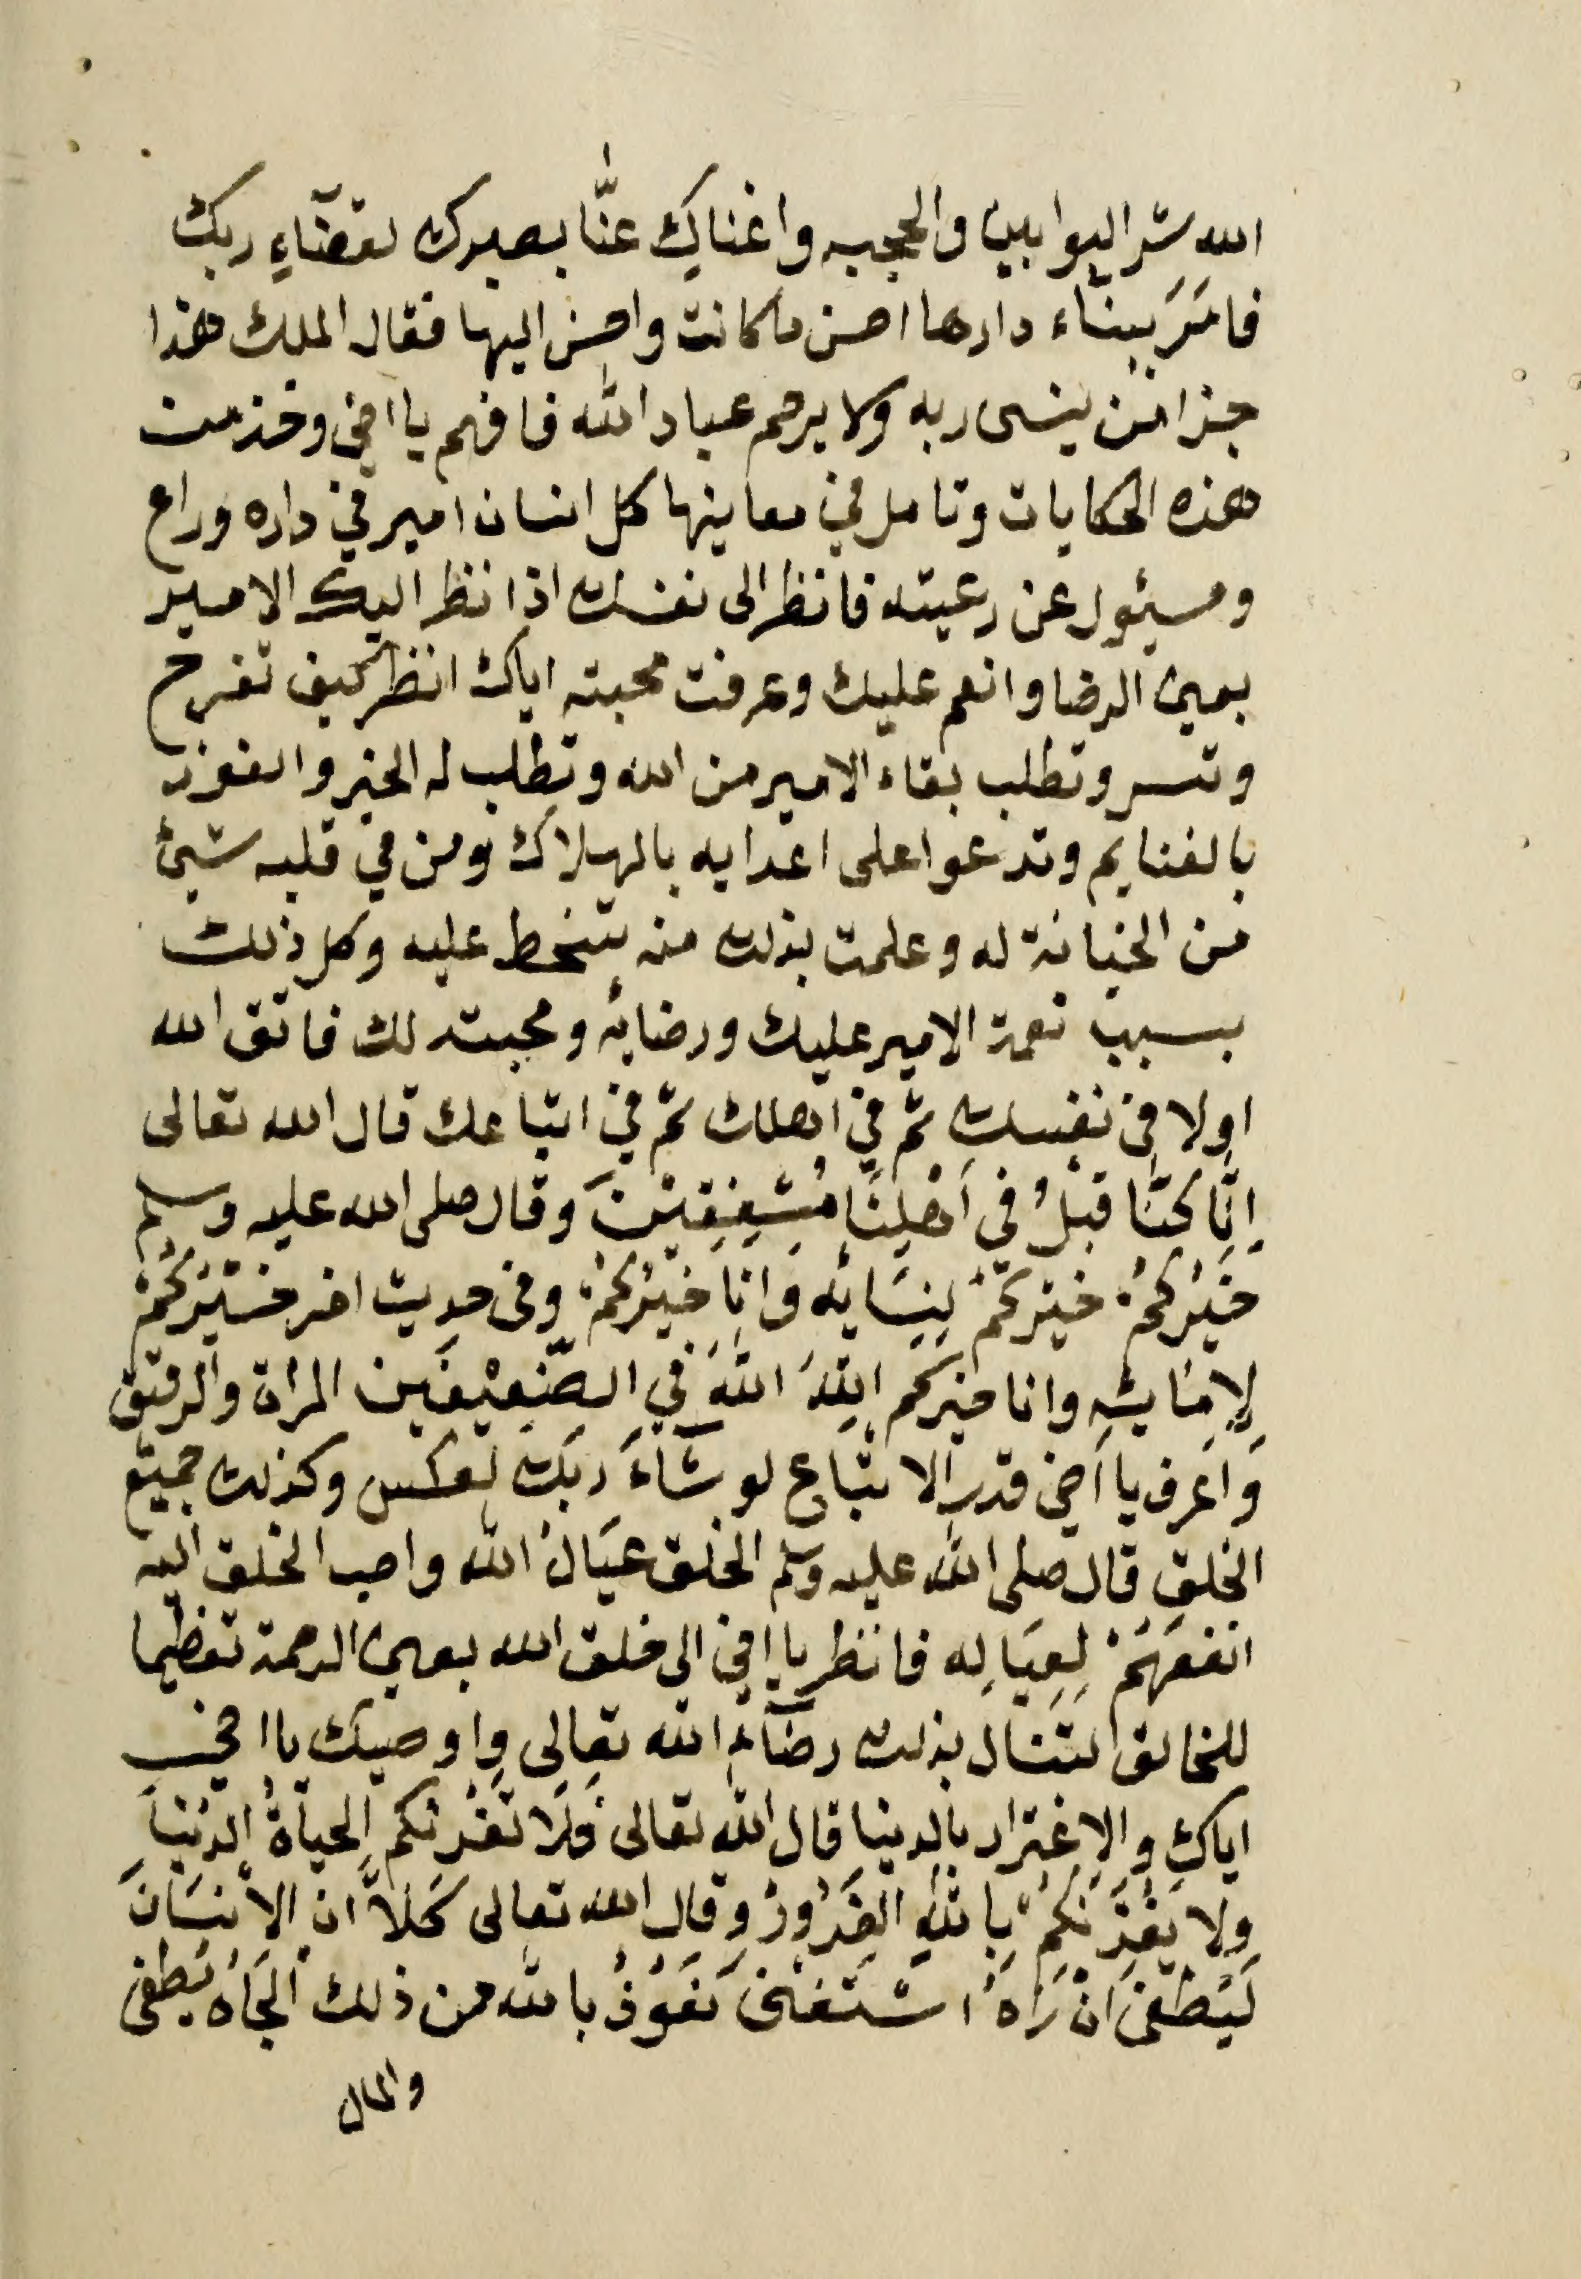 الله شر البوابين والحجبه واغناكِ عنَّا بصبرك لقضآءِ ربك
فامَرَ ببنآء دارها احسن ما كانت واحسن اليها فقال الملك هذا
جزا من ينسى ربه ولا يرحم عباد الله فافهم يا اخي وخذ من
هذه الحكايات وتامل في معاينها كل انسان امير في داره وراع
ومسئول عن رعيته فانظر الى نفسك اذا نظر اليك الامير
بعين الرضا وانعم عليك وعرفت محبته اياك انظر كيف تفرح
وتسر وتطلب بقاء الامير من الله وتطلب له الخير والفوز
بالغنايم وتدعوا على اعدايه بالهلاك ومن في قلبه شيئ
من الخيانة له وعلمت بذلك منه تسخط عليه وكل ذلك
بسبب نعمة الامير عليك ورضائه ومحبته لك فاتق الله
اولا في نفسك ثم في اهلك ثم في اتباعك قال الله تعالى
اِنَّا كنَّا قبلُ في اَهْلِنَا مُشْفِقِيْنَ وقال صلى الله عليه وسلم
خَيْرُكُمْ خيركمْ لِنِسَائِه وَانا خيْرُكُمْ وفي حديث اخر خَيْرُكُمْ
لِاِمَائِه وانا خيركم اللهَ اللهَ في الضَّعِيْفَين المراة والرقيق
وَاعرف يا اَخي قدر الاتباع لو شآءَ رَبك لعكس وكذلك جميع
الخلق قال صلى الله عليه وسلم الخلق عيَالُ الله واحب الخلق اليه
انفعَهُمْ لِعِيَالِه فانظر يا اخي الى خلق الله بعين الرحمة تعظيما
للخالق لتنال بذلك رضآء الله تعالى واوصيك يا اخي
اياك والاغترار بالدنيا قال الله تعالى فَلَا تَغُرَّنكم الحياةُ الدُنيَا
ولا يَغُرَّنكُمْ بِاللهِ الغَرُوْرُ وقال الله تعالى كَلَّا ان الاْنسَانَ
لَيَطْغى اَنْ رَاهُ اسْتَغنى نَعُوْذُ بالله من ذلك الجَاهُ يُطغى
والمال